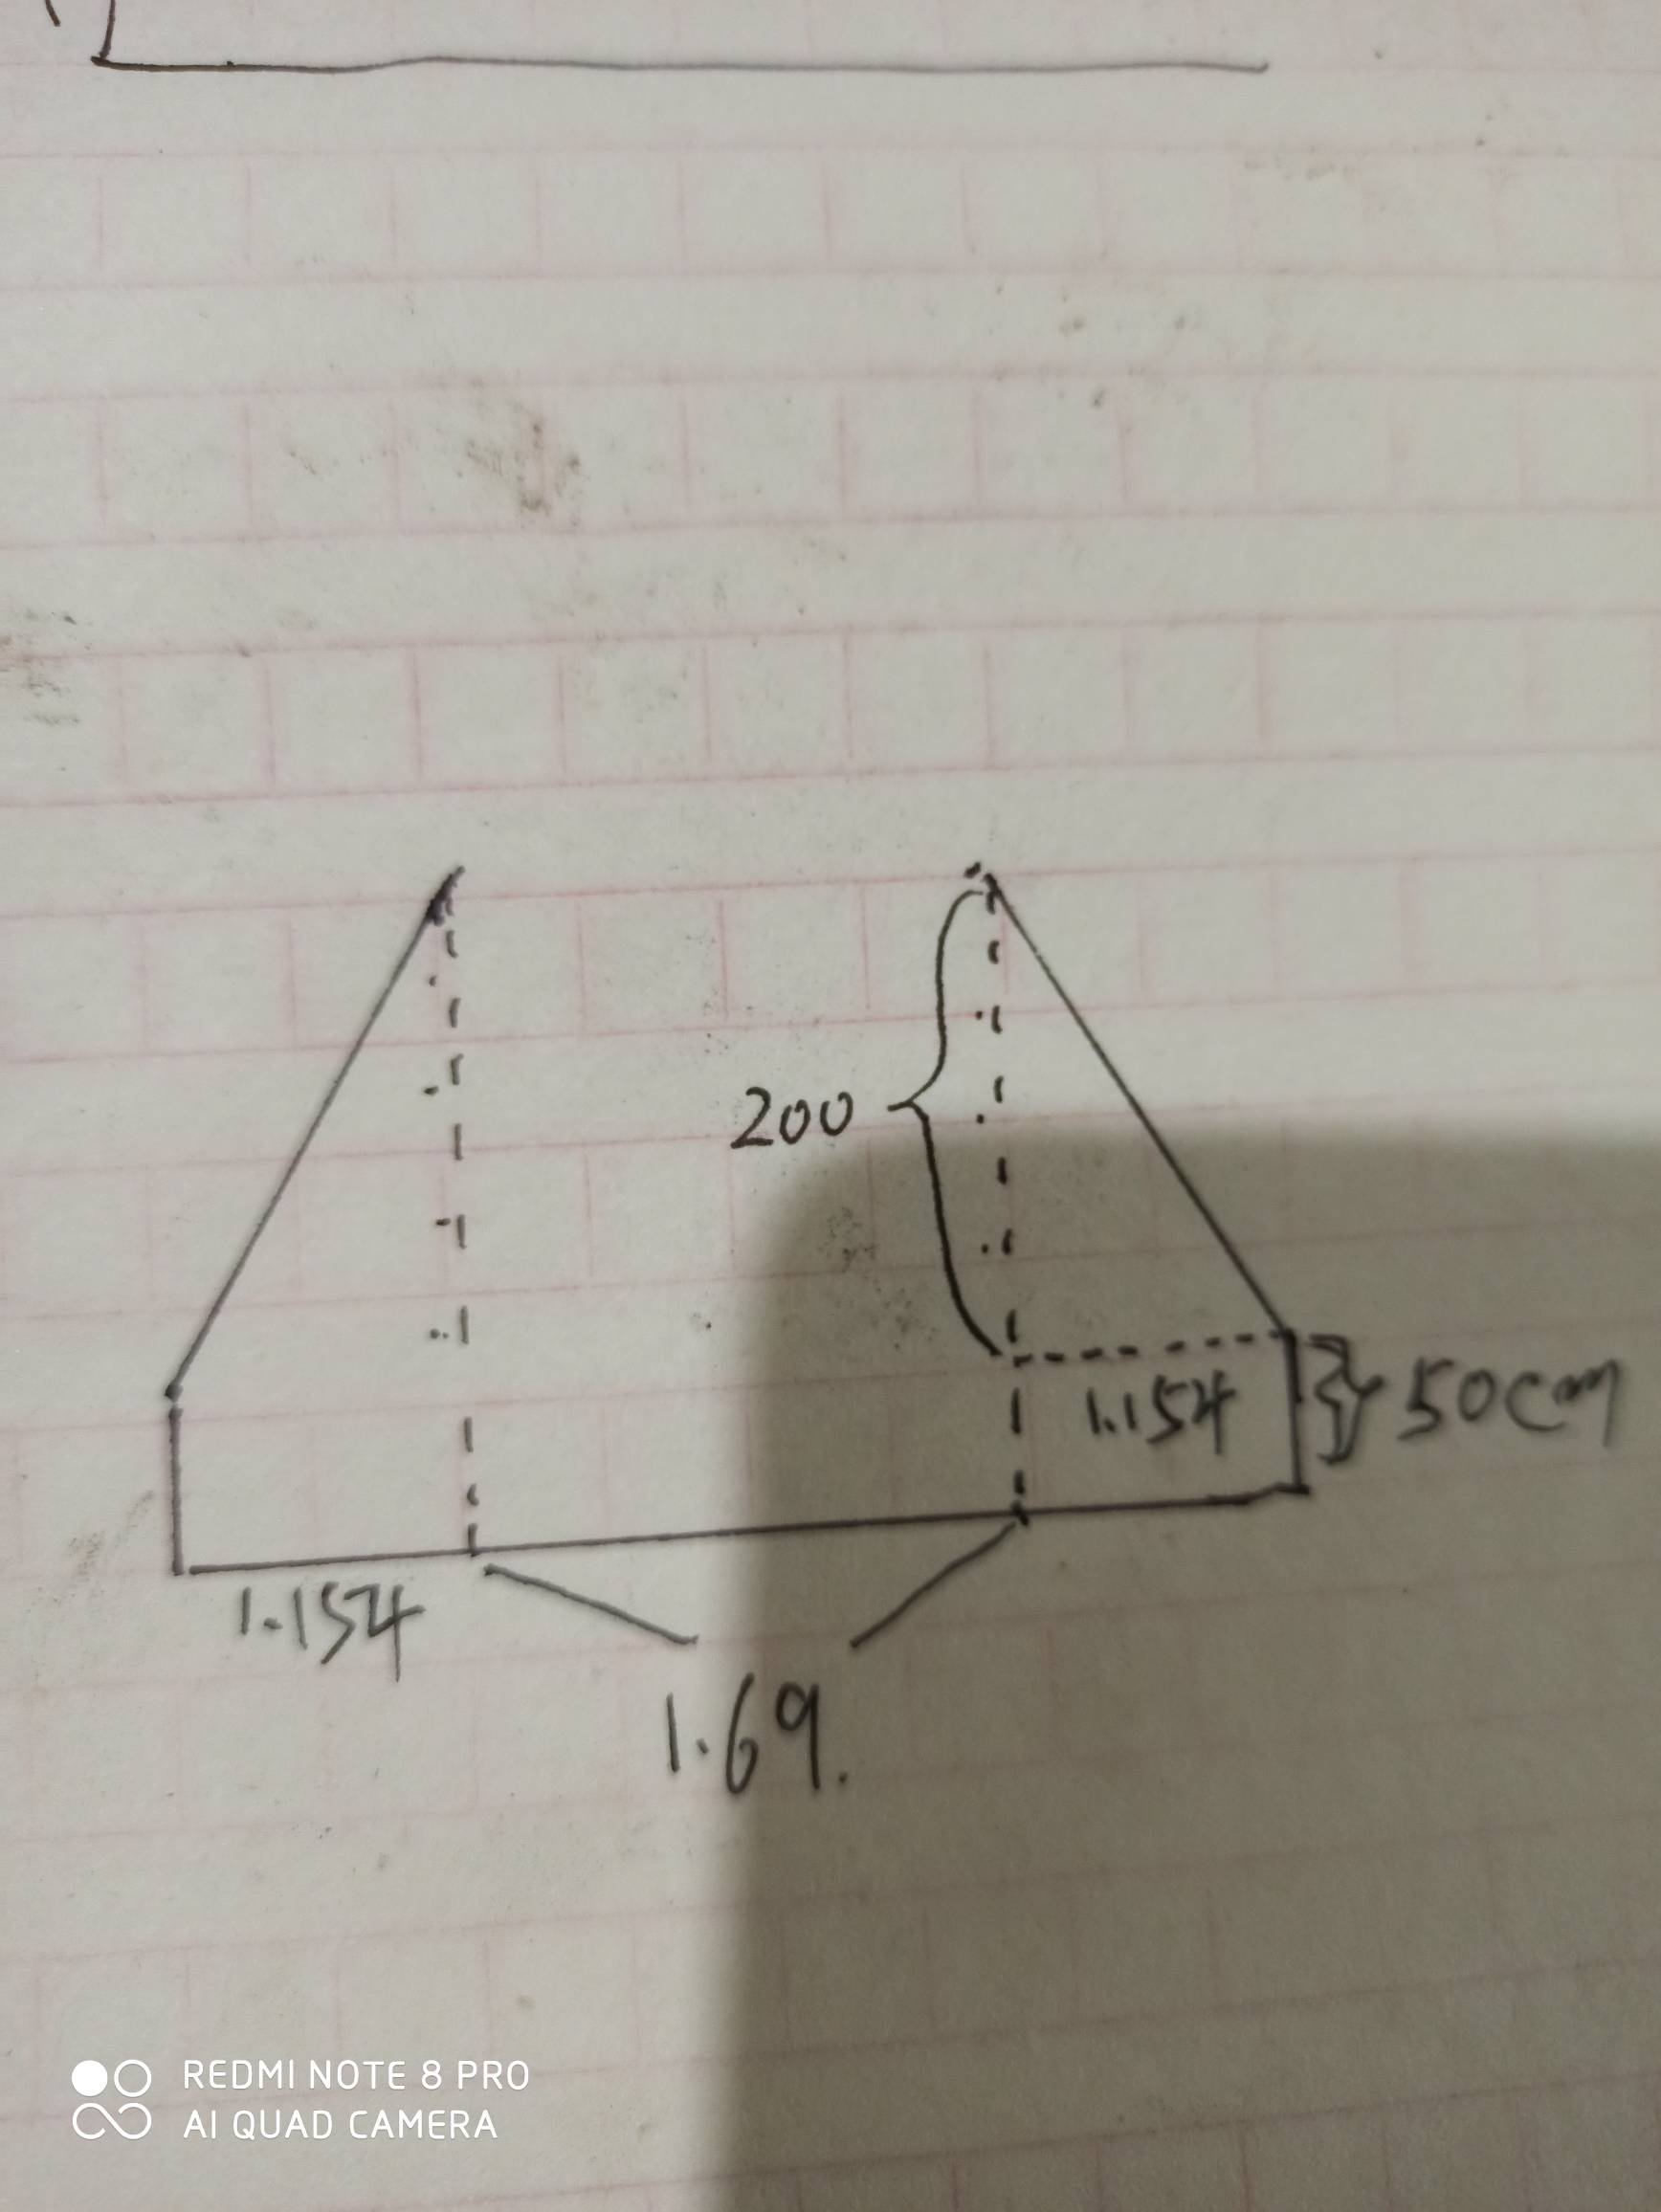 200
1.154
50cm
1.154
1.69.
REDMI NOTE 8 PRO
AI QUAD CAMERA